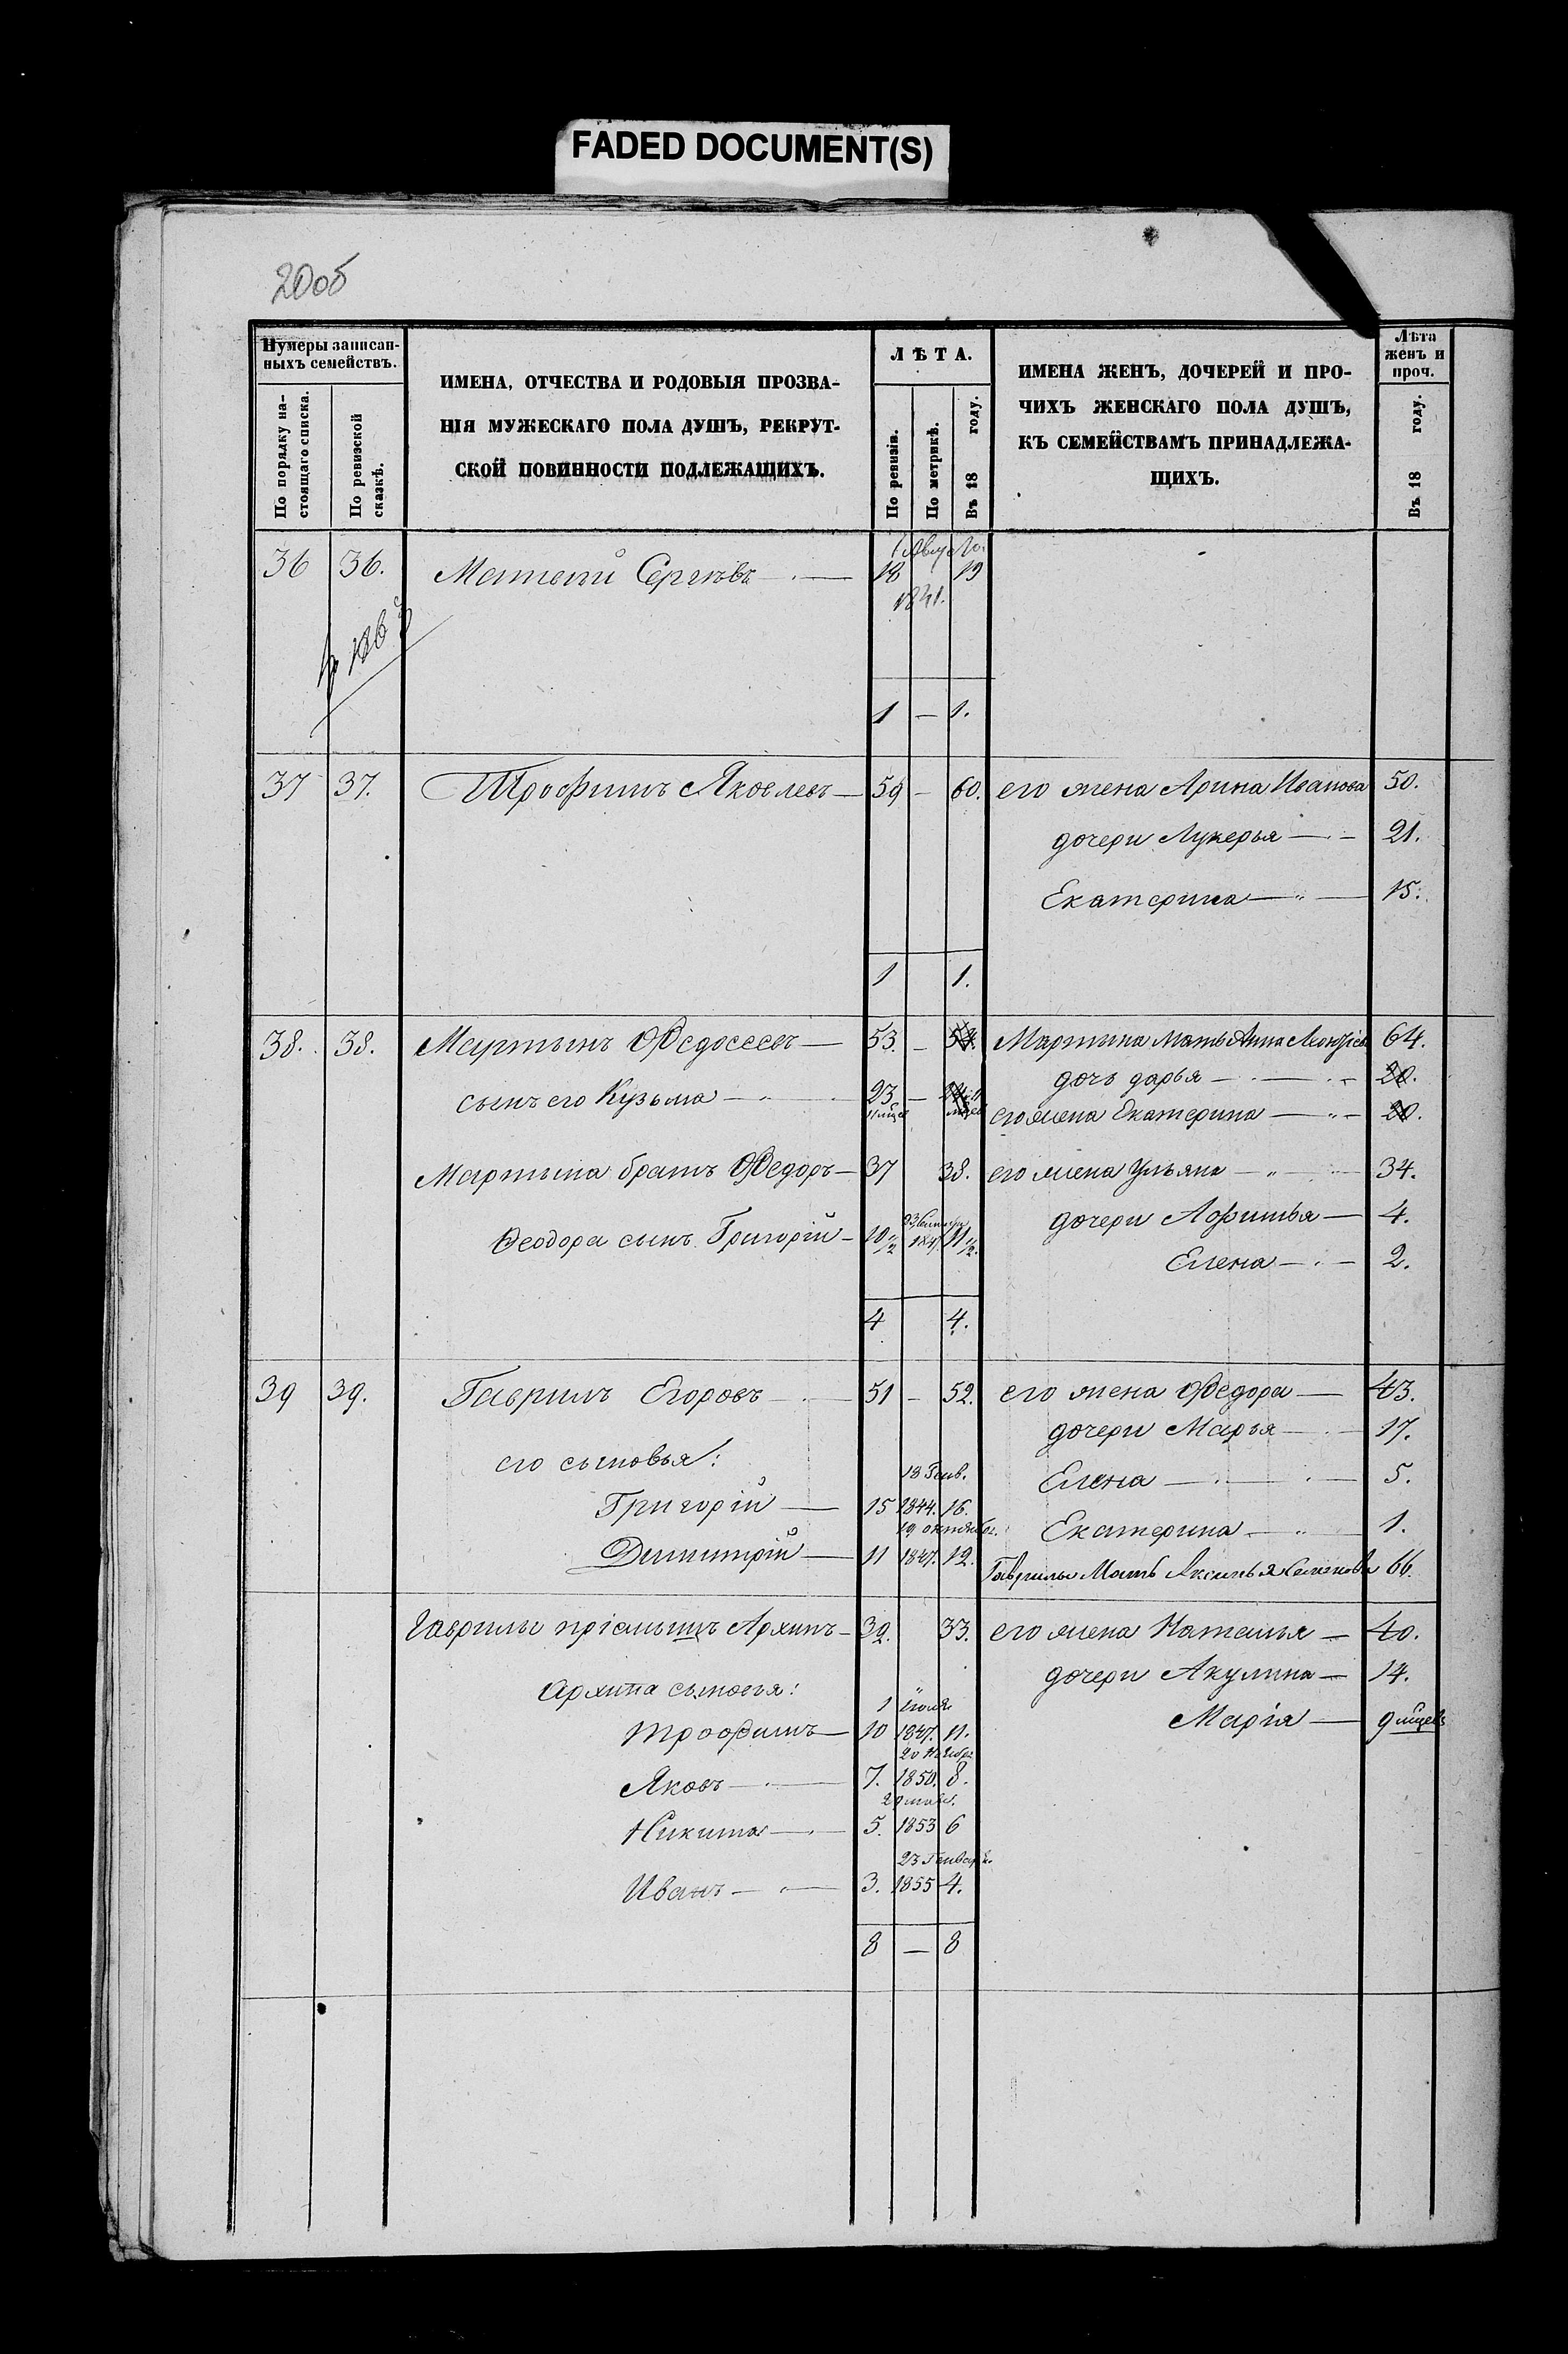 FADED DOCUMENT(S)
20об
Нумеры записан-
ныхъ семействъ.
По порядку на-
стоящаго списка.
По ревизской
сказкѣ.
ИМЕНА, ОТЧЕСТВА И РОДОВЫЯ ПРОЗВА-
НІЯ МУЖЕСКАГО ПОЛА ДУШЪ, РЕКРУТ-
СКОЙ ПОВИННОСТИ ПОДЛЕЖАЩИХЪ.
ЛѢТА.
По ревизіи.
По метрикѣ.
Въ 18 году.
ИМЕНА ЖЕНЪ, ДОЧЕРЕЙ И ПРО-
ЧИХЪ ЖЕНСКАГО ПОЛА ДУШЪ,
КЪ СЕМЕЙСТВАМЪ ПРИНАДЛЕЖА-
ЩИХЪ.
Лѣта
женъ и
проч.
Въ 18 году.
36 36. Сергѣевъ 18 19
1841.
1 — 1.
37 37. Трофимъ Яковлевъ — 59 — 60. его жена Арина Иванова 50.
дочери Лукерья — 21.
Екатерина — 15.
1 1.
38. 38. Мартынъ Ѳедосеевъ — 53. — 54. Мартина мать Анна 64.
дочь дарья — 20.
сынъ его Кузьма — 23 —
его жена Екатерина — 20.
Мартына братъ Ѳедоръ — 37 38. его жена Ульяна — 34.
дочери Афимья — 4.
Ѳеодора сынъ Григорій — 10 1/2 11 1/2.
Елена — 2.
4 4.
39 39. Гаврилъ Егоровъ — 51 — 52. его жена Ѳедора — 43.
дочери Марья — 17.
его сыновья:
18 Генв.
Елена — 5.
Григорій — 15 1844. 16.
19 октября.
Екатерина — 1.
Димитрій — 11 1847. 12.
Гаврилы Мать Аксинья Семенова 66.
Гаврилы пріемышъ Архипъ — 32. 33. его жена Наталья — 40.
дочери Акулина — 14.
Архипа сыновья:
1 Іюля
Марія — 9 мцевъ
Трофимъ — 10 1847. 11.
20 Ноябр.
Яковъ — 7. 1850. 8.
Никита — 5. 1853 6
23 Генваря.
Иванъ — 3. 1855 4.
8 — 8